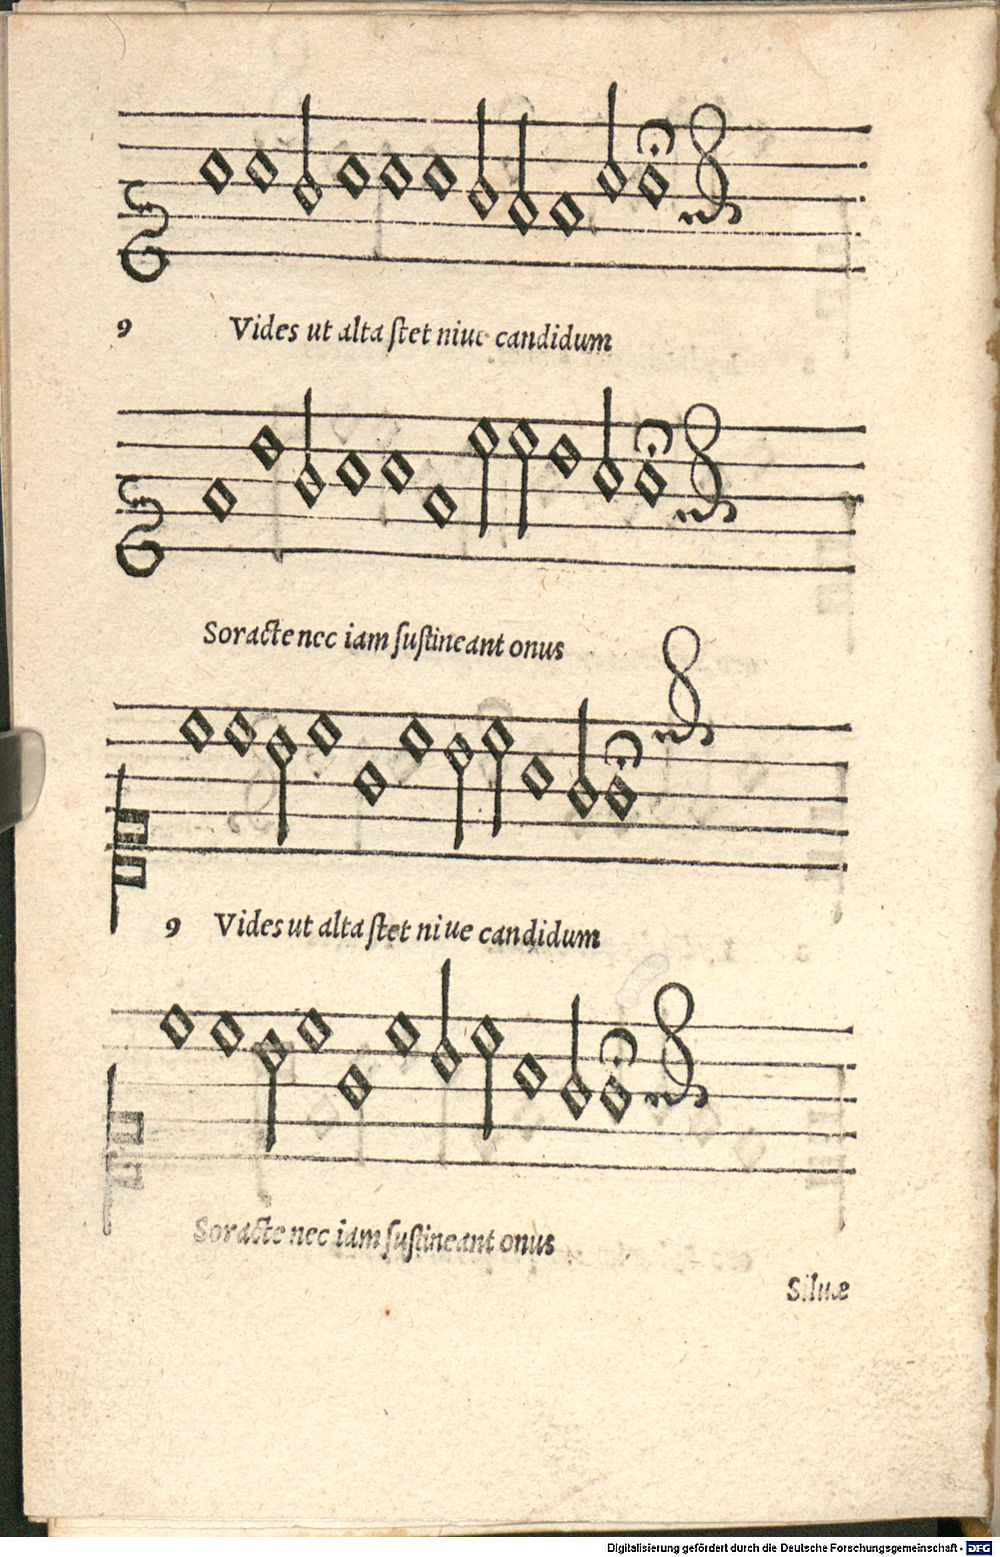 9 Vides ut alta ſtet niue candidum
Soracte nec iam ſuſtineant onus
9 Vides ut alta ſtet niue candidum
Soracte nec iam ſuſtineant onus
Siluæ
Digitalisierung gefördert durch die Deutsche Forschungsgemeinschaft - DFG